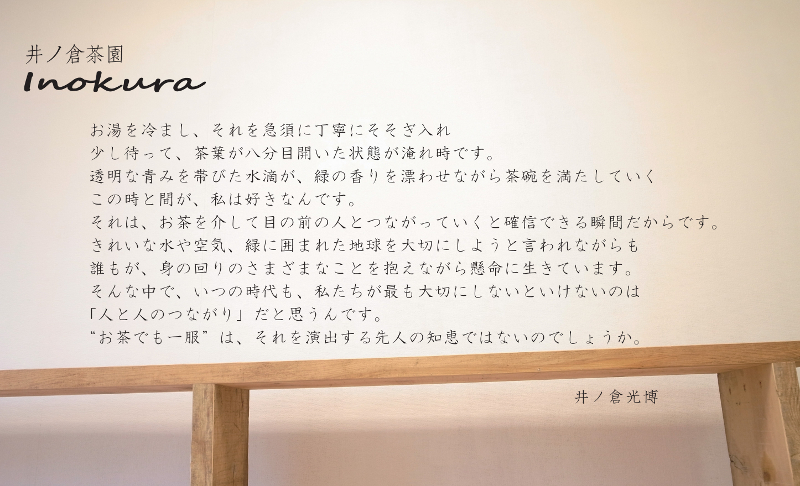 井ノ倉茶園
Inokura
お湯を冷まし、それを急須に丁寧にそそぎ入れ
少し待って、茶葉が八分目開いた状態が淹れ時です。
透明な青みを帯びた水滴が、緑の香りを漂わせながら茶碗を満たしていく
この時と間が、私は好きなんです。
それは、お茶を介して目の前の人とつながっていくと確信できる瞬間だからです。
きれいな水や空気、緑に囲まれた地球を大切にしようと言われながらも
誰もが、身の回りのさまざまなことを抱えながら懸命に生きています。
そんな中で、いつの時代も、私たちが最も大切にしないといけないのは
「人と人のつながり」だと思うんです。
“お茶でも一服”は、それを演出する先人の知恵ではないのでしょうか。
井ノ倉光博